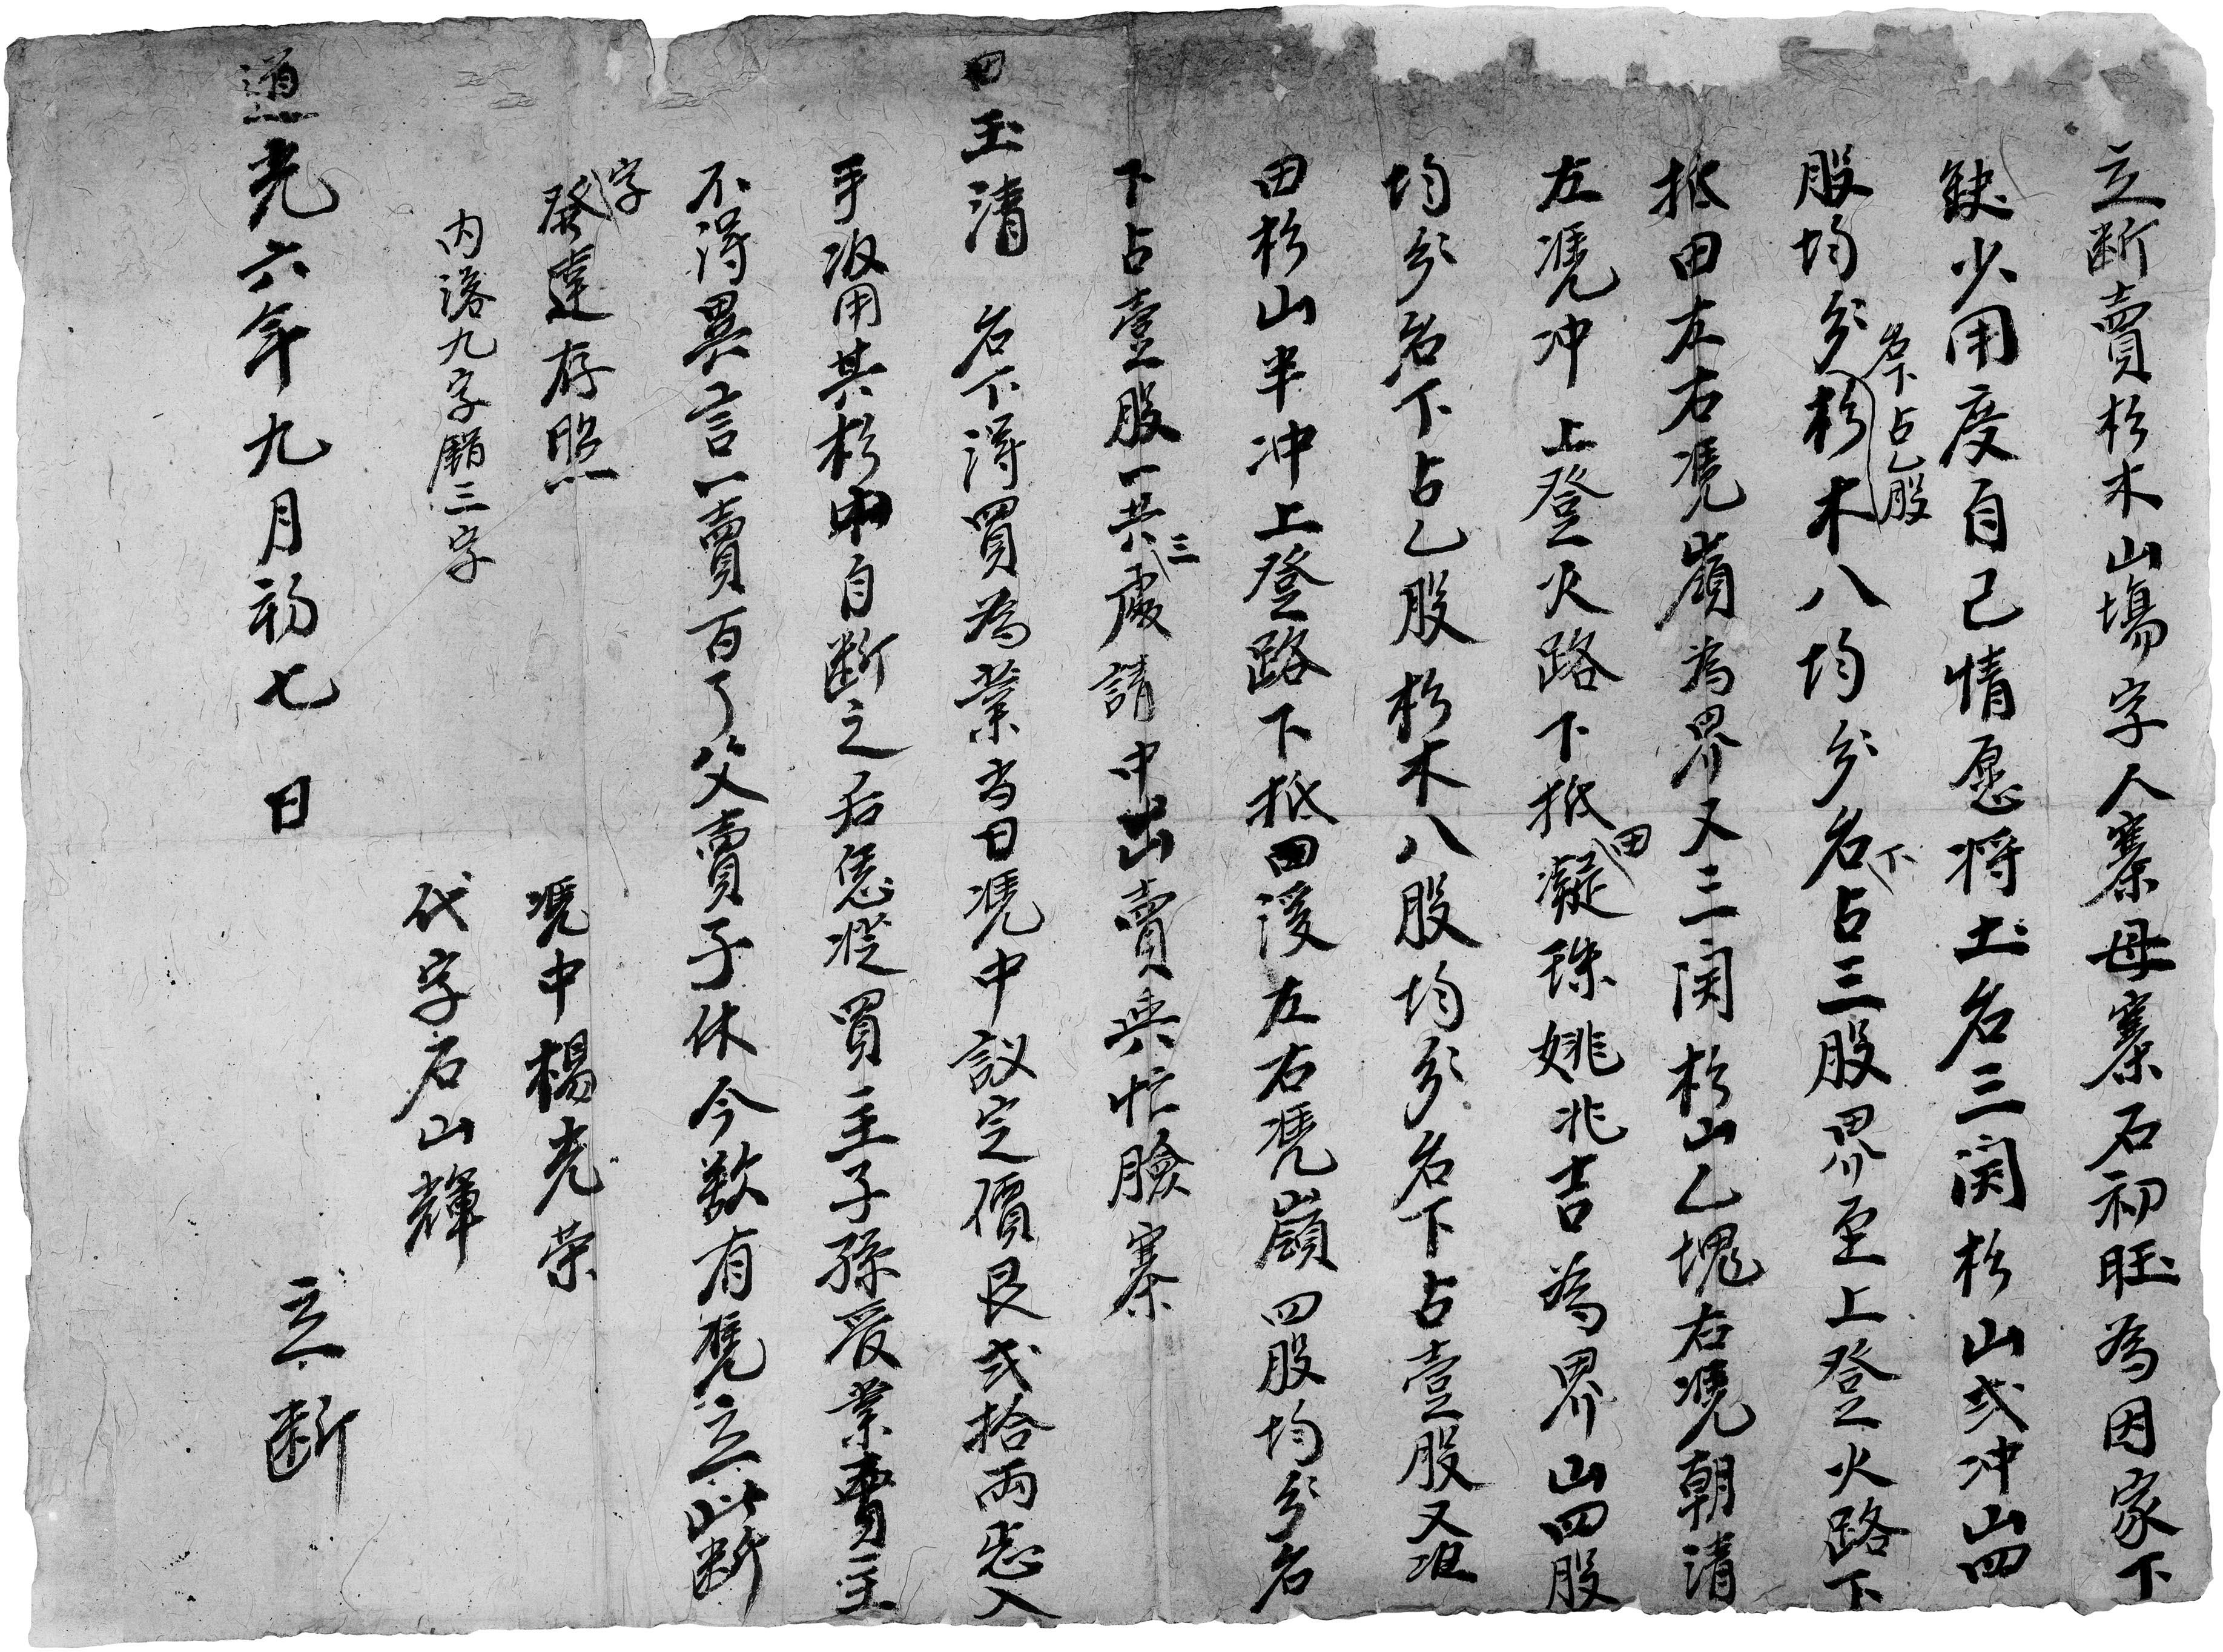 立断賣杉木山場字人寨母寨石初旺為因家下
缺少用度自己情愿将土名三関杉山弍冲山四
股均分名下占乙股杉木八均分名下占三股界至上登火路下
抵田左右凴嶺為界又三関杉山乙塊右凴朝清
左凴冲上登火路下抵田凝珠姚兆吉為界山四股
均分名下占乙股杉木八股均分名下占壹股又
田杉山半冲上登路下抵田溪左右凴嶺四股均分名
下占壹股一共三處請中出賣與忙臉寨
田玉清 名下淂買為業当日凴中議定價艮弍拾両忞入
手收用其杉山自断之后恁從買主子孫受業賣主
不淂異言一賣百了父賣子休今欲有凴立此断
字發達存照
内落九字錯三字
凴中楊光荣
代字石山輝
道光六年九月初七日 立断